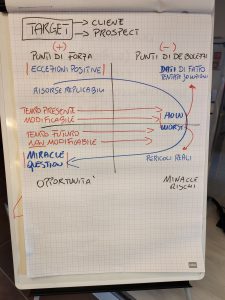 TARGET → CLIENTE
→ PROSPECT
(+) (-)
PUNTI DI FORZA PUNTI DI DEBOLEZZA
ECCEZIONI POSITIVE DATI DI FATTO
TENTATE SOLUZIONI
RISORSE REPLICABILI
TEMPO PRESENTE
MODIFICABILE
TEMPO FUTURO
NON MODIFICABILE
HOW
WORSE
MIRACLE
QUESTION
PERICOLI REALI
OPPORTUNITA' MINACCE
RISCHI